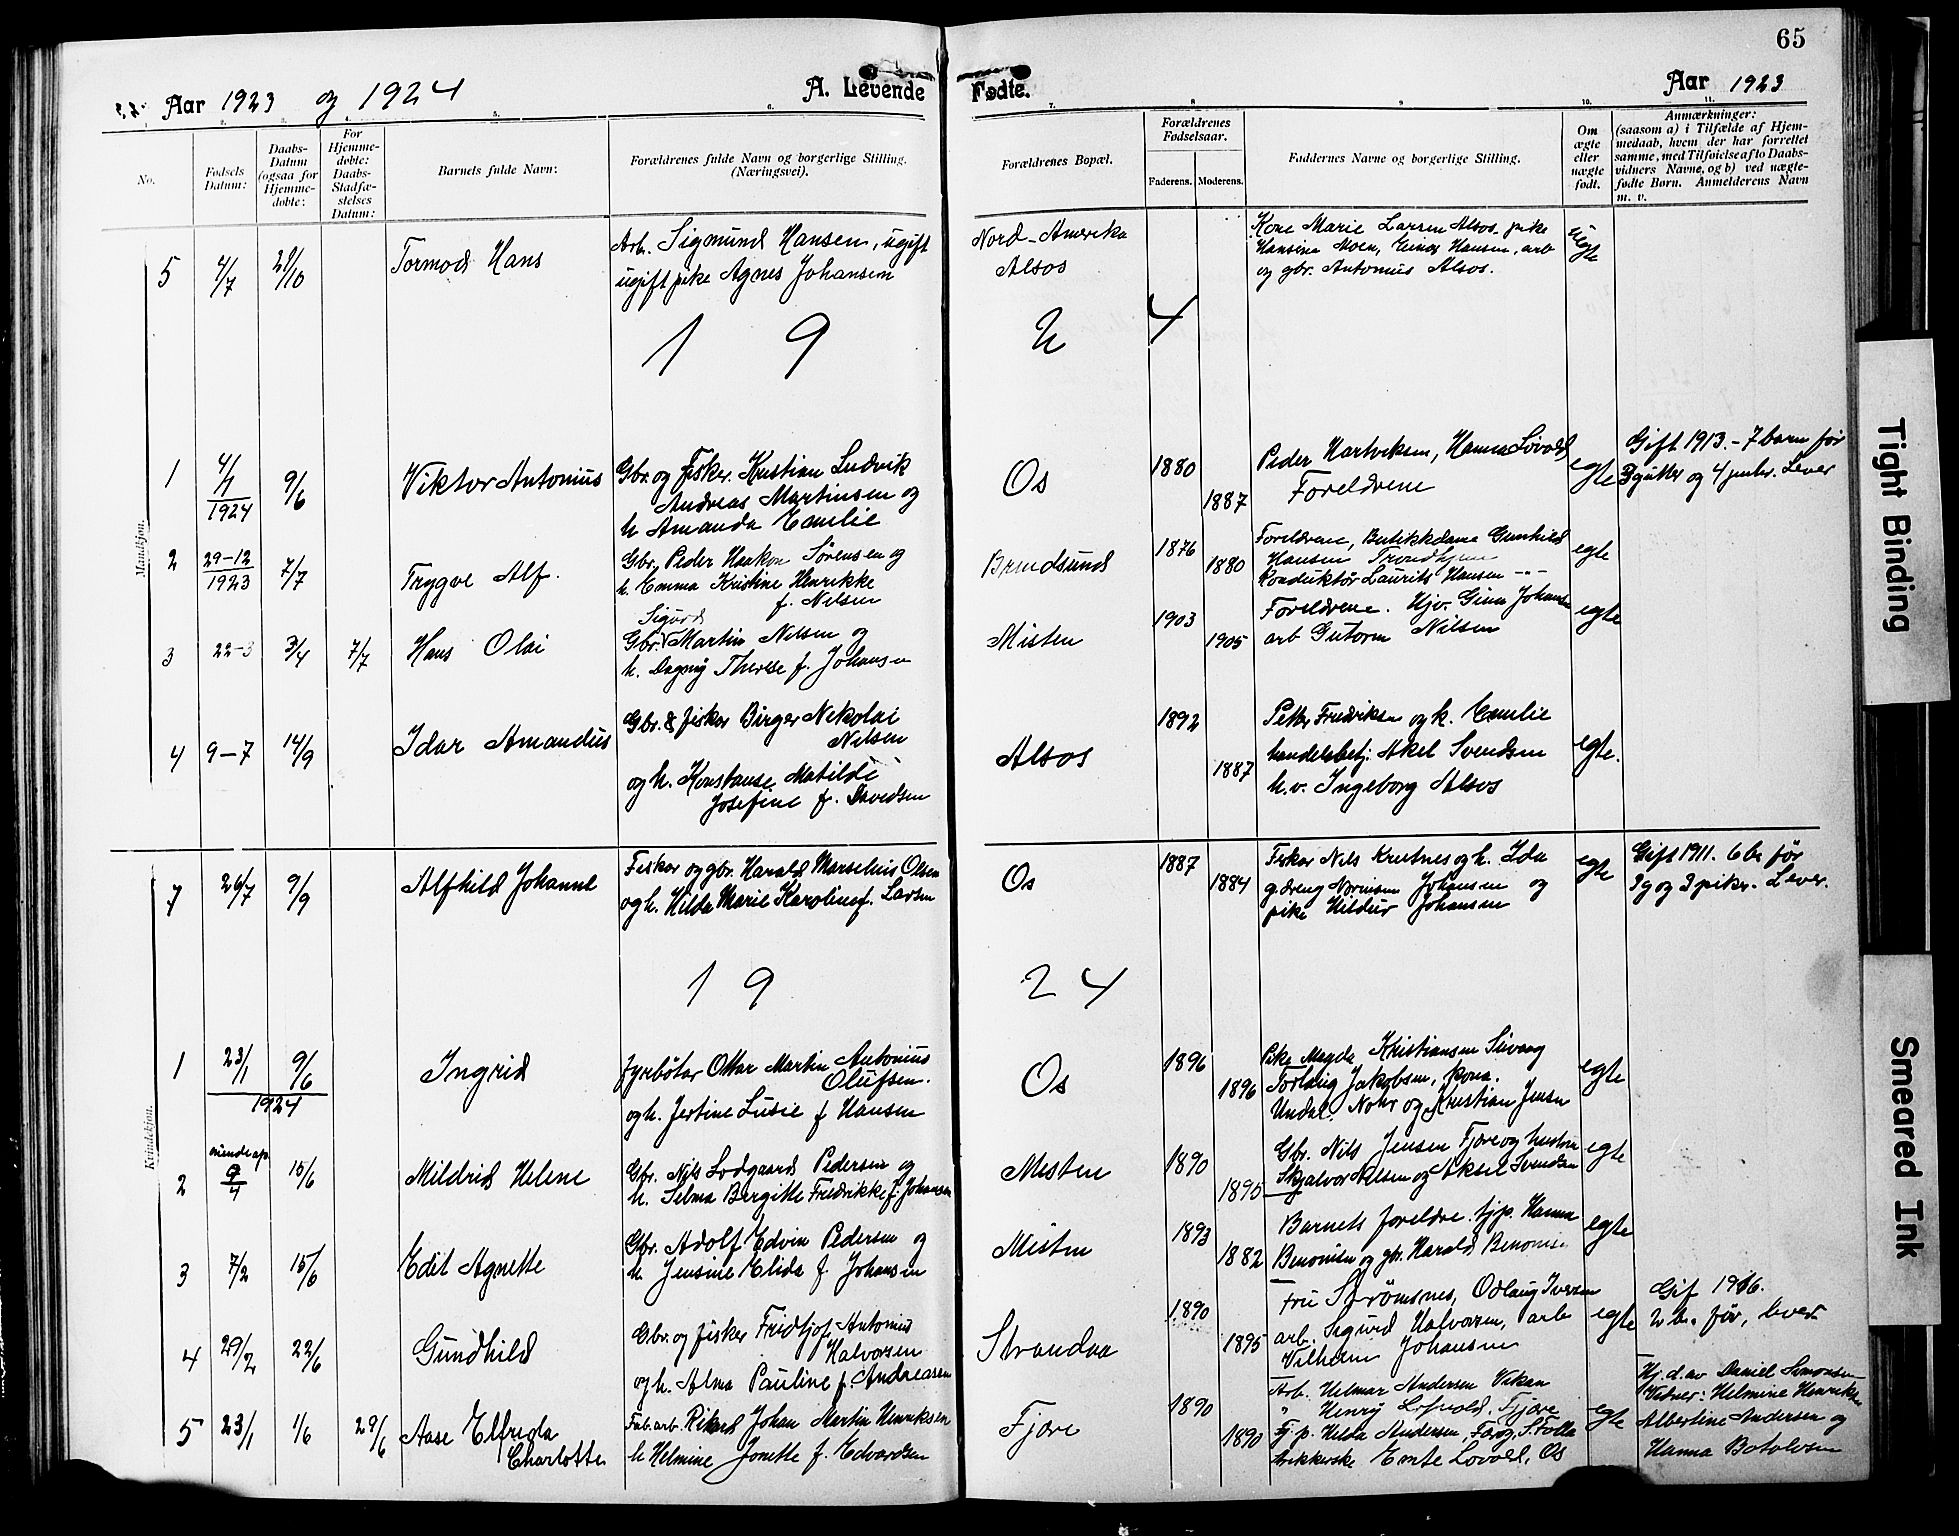 65
Aar 1923 og 1924
A. Levende
Fødte.
Aar 1923
5.
6.
7.
8
9
10.
11.
No.
Fødsels Datum:
Daabs-Datum (ogsaa for Hjemmedøbte:
For Hjemmedøbte: Daabs-Stadfæstelses Datum:
Barnets fulde Navn:
Forældrenes fulde Navn og borgerlige Stilling. (Næringsvei).
Forældrenes Bopæl.
Forældrenes Fødselsaar.
Faderens.
Moderens.
Faddernes Navne og borgerlige Stilling.
Om ægte eller uægte født.
Anmærkninger:
(saasom a) i Tilfælde af Hjem-
medaab, hvem der har forrettet
samme, med Tilføielse af to Daabs-
vidners Navne, og b) ved uægte-
fødte Børn. Anmelderens Navn
m. v.
Mandkjøn.
5 4/7 28/10 Tormod Hans
Arb. Sigmund Hansen, ugift
ugift pike Agnes Johansen
Nord-Amerika
Alsos
Kone Marie Larsen Alsos. pike
Hansine Moen, Einar Hansen, arb
og gbr. Antonius Alsos.
uegte
1 9 2 4
1 4/1 1924 9/6 Viktor Antonius
Gbr. og fisker. Kristian Ludvik
Andreas Martinsen og
h. Amanda Emelie
Os 1880 1887
Peder Hartviksen, Hanna Lövold
Foreldrene
egte
Gift 1913. - 7 barn før
3 gutter og 4 Lever
2 29-12 1923 7/7 Trygve Alf.
Gbr. Peder Haakon Sørensen og
h. Emma Kristine Henrikke
f. Nilsen
Bremdsund 1876 1880
Foreldrene, Butikkdame Gunhild
Hansen Trondhjem
Konduktör Laurits Hansen - " -
egte
3 22-3 3/4 7/7 Hans Olai
Sigurd
Gbr. Martin Nilsen og
h. Dagny Therese f. Johansen
Misten 1903 1905
Foreldrene. Gina Johansen
arb Gutorm Nilsen
egte
4 9-7 14/9 Idar Amandus
Gbr. & fisker Birger Nikolai
Nilsen
og h. Konstanse Matilde
Josefine f. Davidsen
Alsos 1892 1887
Petter Fredriksen og h. Emelie
handelsbetj. Aksel Svendsen
h.v. Ingeborg Alsos
egte.
Kvindekjøn.
7 26/7 9/9 Alfhild Johanne
Fisker og gbr. Harald Marselius Olsen
og h. Hilda Marie Karoline f. Larsen
Os 1887 1884
Fisker Nils Krutnes og h. Ida
gdreng Johansen og
pike Hildur Johansen
egte
Gift 1911. 6 b. før
3 g og 3 piker. Lever.
1 9 2 4
1 23/1 9/6 1924 Ingrid
Fyrbøter Ottar Martin Antonius
Olufsen.
og h. Jertine Lusie f Hansen
Os 1896 1896
Pike Magda Kristiansen
Torlaug Jakobsen, kona.
Undal. Nohr og Kristian Jensen
egte
2 niende ap. 9/4 15/6 Mildrid Helene
Gbr. Nils Lodgaard Pedersen og
h. Selma Birgitte Fredrikke f. Johansen
Misten 1890 1895
Gbr. Nils Jensen Fjære og hustru
Skjalvor Nilsen og Aksel Svendsen
egte
3 7/2 15/6 Edit Agnette
Gbr. Adolf Edvin Pedersen og
h. Jensine Elida f Johansen
Misten 1893 1882
Barnets foreldre. tjp. Hanna
Benonisen og gbr. Harald Benonisen
egte
4 29/2 22/6 Gundhild
Gbr. og fisker Fridtjof Antonius
Halvorsen
og h. Alma Pauline f. Andreasen
Strandaa 1890 1895
Fru Strømsnes, Odlaug Iversen
arb. Sigurd Halvorsen, arb
Vilhelm Johansen
egte
Gif 1916.
2 b. før, lever
5 23/1 1/6 29/6 Aase Elfrida
Charlotte
Fab.arb. Rikard Johan Martin Henriksen
h Helmine Jonette f. Edvardsen
Fjære 1890 1890
Arb. Helmar Andersen Vikan
" Henry Løvold. Fjære
Tj p. Hilda Andersen, S. Folla
Emte Lovold, Os
egte
Hj. d. av Daniel Simonsen
Vidner: Helmine Henriksen
Albertine Andersen og
Hanna Botolvsen
Tight Binding
Smeared Ink